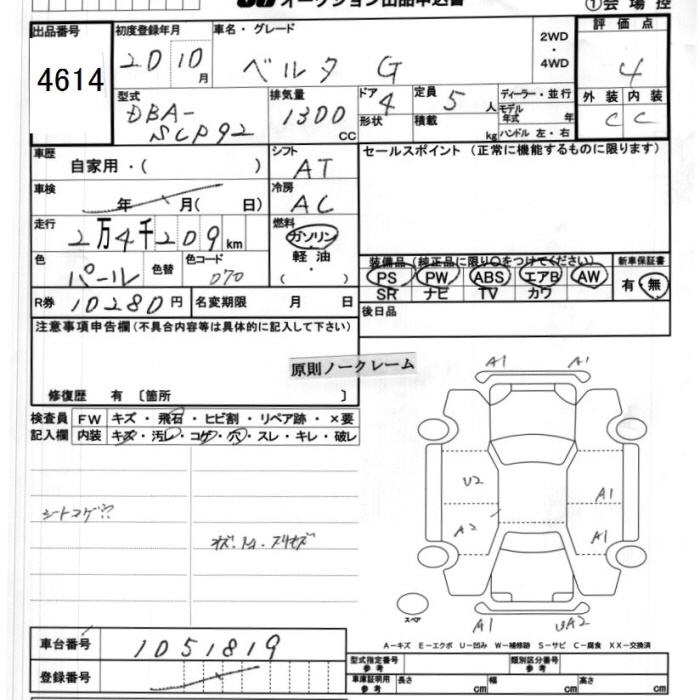 オークション出品申込書 ①会場控
出品番号 初度登録年月 車名・グレード 評価点
4614 20 10月 ベルタ G 2WD・4WD 4
型式 排気量 ドア 定員 ディーラー・並行 外装 内装
DBA-SCP92 1300CC 4 5人 モデル年式 年 C C
形状 積載 kg ハンドル 左・右
車歴 自家用・( ) シフト AT セールスポイント (正常に機能するものに限ります)
車検 年 月( 日) 冷房 AC
走行 2万4千209km 燃料 ガソリン・軽油・( )
色 パール 色替 色コード 070
装備品 (純正品に限り○をつけてください) 新車保証書
PS PW ABS エアB AW 有・無
SR ナビ TV カワ
R券 10280円 名変期限 月 日 後日品
注意事項申告欄 (不具合内容等は具体的に記入して下さい)
原則ノークレーム
修復歴 有 〔箇所 〕
検査員記入欄 FW キズ・飛石・ヒビ割・リペア跡・×要
内装 キズ・汚レ・コゲ・穴・スレ・キレ・破レ
A1 A1
U2 A1
A2 A1
シートコゲ
スペア A1 UA2
A-キズ E-エクボ U-凹み W-補修跡 S-サビ C-腐食 XX-交換済
車台番号 1051819
型式指定番号 参考 類別区分番号 参考
登録番号
車庫証明用 参考 長さ cm 幅 cm 高さ cm